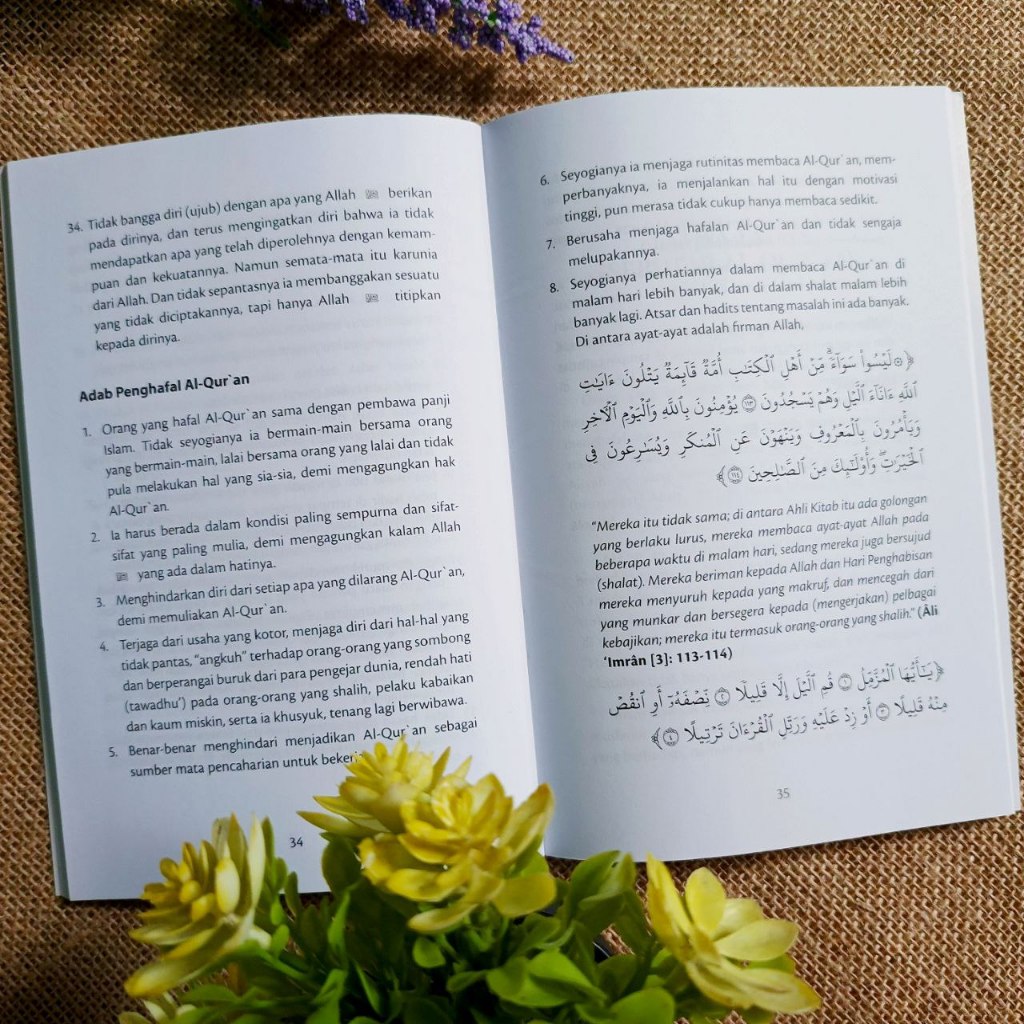 34. Tidak bangga diri (ujub) dengan apa yang Allah ﷻ berikan
pada dirinya, dan terus mengingatkan diri bahwa ia tidak
mendapatkan apa yang telah diperolehnya dengan kemam-
puan dan kekuatannya. Namun semata-mata itu karunia
dari Allah. Dan tidak sepantasnya ia membanggakan sesuatu
yang tidak diciptakannya, tapi hanya Allah ﷻ titipkan
kepada dirinya.
Adab Penghafal Al-Qur`an
1. Orang yang hafal Al-Qur`an sama dengan pembawa panji
Islam. Tidak seyogianya ia bermain-main bersama orang
yang bermain-main, lalai bersama orang yang lalai dan tidak
pula melakukan hal yang sia-sia, demi mengagungkan hak
Al-Qur`an.
2. Ia harus berada dalam kondisi paling sempurna dan sifat-
sifat yang paling mulia, demi mengagungkan kalam Allah
ﷻ yang ada dalam hatinya.
3. Menghindarkan diri dari setiap apa yang dilarang Al-Qur`an,
demi memuliakan Al-Qur`an.
4. Terjaga dari usaha yang kotor, menjaga diri dari hal-hal yang
tidak pantas, “angkuh” terhadap orang-orang yang sombong
dan berperangai buruk dari para pengejar dunia, rendah hati
(tawadhu’) pada orang-orang yang shalih, pelaku kabaikan
dan kaum miskin, serta ia khusyuk, tenang lagi berwibawa.
5. Benar-benar menghindari menjadikan Al-Qur`an sebagai
sumber mata pencaharian untuk bekerj
34
6. Seyogianya ia menjaga rutinitas membaca Al-Qur`an, mem-
perbanyaknya, ia menjalankan hal itu dengan motivasi
tinggi, pun merasa tidak cukup hanya membaca sedikit.
7. Berusaha menjaga hafalan Al-Qur`an dan tidak sengaja
melupakannya.
8. Seyogianya perhatiannya dalam membaca Al-Qur`an di
malam hari lebih banyak, dan di dalam shalat malam lebih
banyak lagi. Atsar dan hadits tentang masalah ini ada banyak.
Di antara ayat-ayat adalah firman Allah,
﴿۞ لَيْسُوا۟ سَوَآءً ۗ مِّنْ أَهْلِ ٱلْكِتَٰبِ أُمَّةٌ قَآئِمَةٌ يَتْلُونَ ءَايَٰتِ
ٱللَّهِ ءَانَآءَ ٱلَّيْلِ وَهُمْ يَسْجُدُونَ ۝١١٣ يُؤْمِنُونَ بِٱللَّهِ وَٱلْيَوْمِ ٱلْءَاخِرِ
وَيَأْمُرُونَ بِٱلْمَعْرُوفِ وَيَنْهَوْنَ عَنِ ٱلْمُنكَرِ وَيُسَٰرِعُونَ فِى
ٱلْخَيْرَٰتِ ۖ وَأُو۟لَٰٓئِكَ مِنَ ٱلصَّٰلِحِينَ ۝١١٤﴾
“Mereka itu tidak sama; di antara Ahli Kitab itu ada golongan
yang berlaku lurus, mereka membaca ayat-ayat Allah pada
beberapa waktu di malam hari, sedang mereka juga bersujud
(shalat). Mereka beriman kepada Allah dan Hari Penghabisan
mereka menyuruh kepada yang makruf, dan mencegah dari
yang munkar dan bersegera kepada (mengerjakan) pelbagai
kebajikan; mereka itu termasuk orang-orang yang shalih.” (Âli
‘Imrân [3]: 113-114)
﴿يَٰٓأَيُّهَا ٱلْمُزَّمِّلُ ۝١ قُمِ ٱلَّيْلَ إِلَّا قَلِيلًا ۝٢ نِّصْفَهُۥٓ أَوِ ٱنقُصْ
مِنْهُ قَلِيلًا ۝٣ أَوْ زِدْ عَلَيْهِ وَرَتِّلِ ٱلْقُرْءَانَ تَرْتِيلًا ۝٤﴾
35